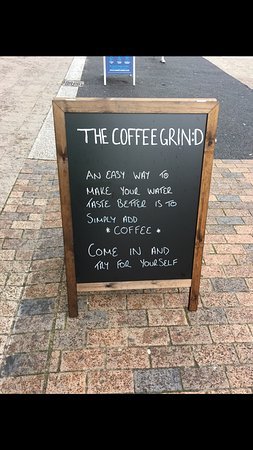 THE COFFEE GRIN:D
AN EASY WAY TO
MAKE YOUR WATER
TASTE BETTER IS TO
SIMPLY ADD
* COFFEE *
COME IN AND
TRY FOR YOURSELF